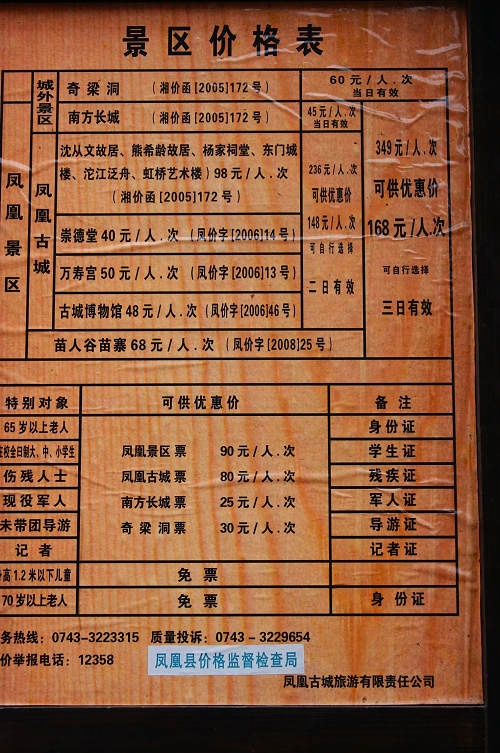 景区价格表
凤凰景区
城外景区
奇梁洞 (湘价函[2005]172号)
60元/人.次
当日有效
南方长城 (湘价函[2005]172号)
45元/人.次
当日有效
凤凰古城
沈从文故居、熊希龄故居、杨家祠堂、东门城
楼、沱江泛舟、虹桥艺术楼)98元/人.次
(湘价函[2005]172号)
崇德堂40元/人.次 (凤价字[2006]14号)
万寿宫50元/人.次 (凤价字[2006]13号)
古城博物馆48元/人.次 (凤价字[2006]46号)
236元/人.次
可供优惠价
148元/人.次
可自行选择
二日有效
苗人谷苗寨68元/人.次 (凤价字[2008]25号)
349元/人.次
可供优惠价
168元/人.次
可自行选择
三日有效
特别对象 可供优惠价 备注
65岁以上老人 身份证
在校全日制大、中、小学生 凤凰景区票 90元/人.次 学生证
伤残人士 凤凰古城票 80元/人.次 残疾证
现役军人 南方长城票 25元/人.次 军人证
未带团导游 奇梁洞票 30元/人.次 导游证
记者 记者证
身高1.2米以下儿童 免票
70岁以上老人 免票 身份证
务热线:0743-3223315 质量投诉:0743-3229654
价举报电话:12358
凤凰县价格监督检查局
凤凰古城旅游有限责任公司